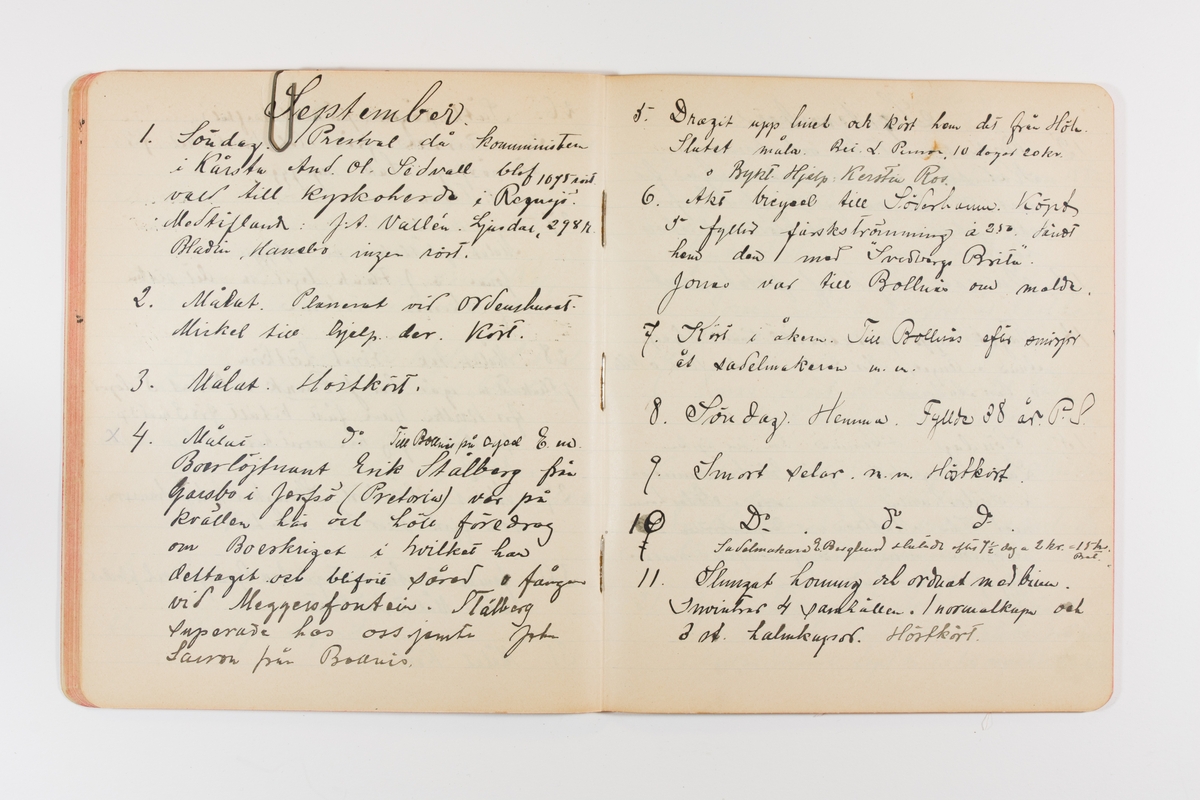 September
1. Söndag. Prestval då komministern
i Kårsta And. Ol. Södvall blef 1075 röst.
vald till kyrkoherde i Regnsjö.
Medtäfland: J. A. Vallén. Ljusdal, 298 r.
Bladin, Hanebo ingen röst.
2. Målat. Planerat vid Ordenshuset.
Mickel till hjelp der. Kört.
3. Målat. Höstkört.
4. Målat. D:o Till Bollnäs på cycel E. m.
Boerlöjtnant Erik Stålberg från
i Jerfsö (Pretoria) var på
kvällen här och höll föredrag
om Boerkriget i hvilket han
deltagit och blifvit sårad o fången
vid Meggersfontein. Stålberg
superade hos oss jemte John
från Bollnäs.
5. Dragit upp linet och kört hem det från
Slutat måla. L. Persson, 10 dagar 20 kr.
o Bykt. Hjelp: Kerstin Ros.
6. Åkt bicycel till Söderhamn. Köpt
5 fjllr färskströmming à 2 50. Sändt
hem den med "Svedbergs Brita".
Jonas var till Bollnäs om malde.
7. Kört i åkern. Till Bollnäs efter smörjor
åt sadelmakaren m. m.
8. Söndag. Hemma. Fyllde 38 år. P. S.
9. Smort selar. m. m. Höstkört.
10 D:o d:o d:o.
Sadelmakare E. Berglund slutade efter 7½ dag a 2 kr. = 15 kr.
Bet.
11. Slungat honung och ordnat med bina.
Invintrar 4 samhällen. 1 normalkupa och
3 st. halmkupor. Höstkört.